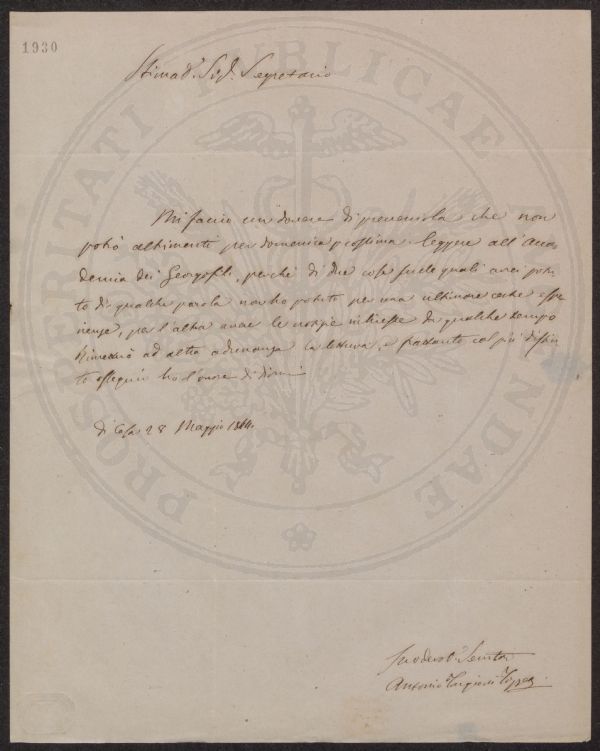 1930
PROSPERITATI PUBLICAE AUGENDAE
Stimat.º Sig.r Segretario
Mi faccio un dovere di prevenirla che non
potrò altrimenti per domenica prossima leggere all'Acca-
demia dei Georgofili, perché di due cose sulle quali avrei potu-
to di qualche parola non ho potuto per una ultimare
, per l'altra avere le notizie da qualche tempo
ad altra adunanza la lettura, e frattanto col più distin-
to ossequio ho l'onore di dirmi
di Casa 28 Maggio
Suo devot.º Servitor
Antonio